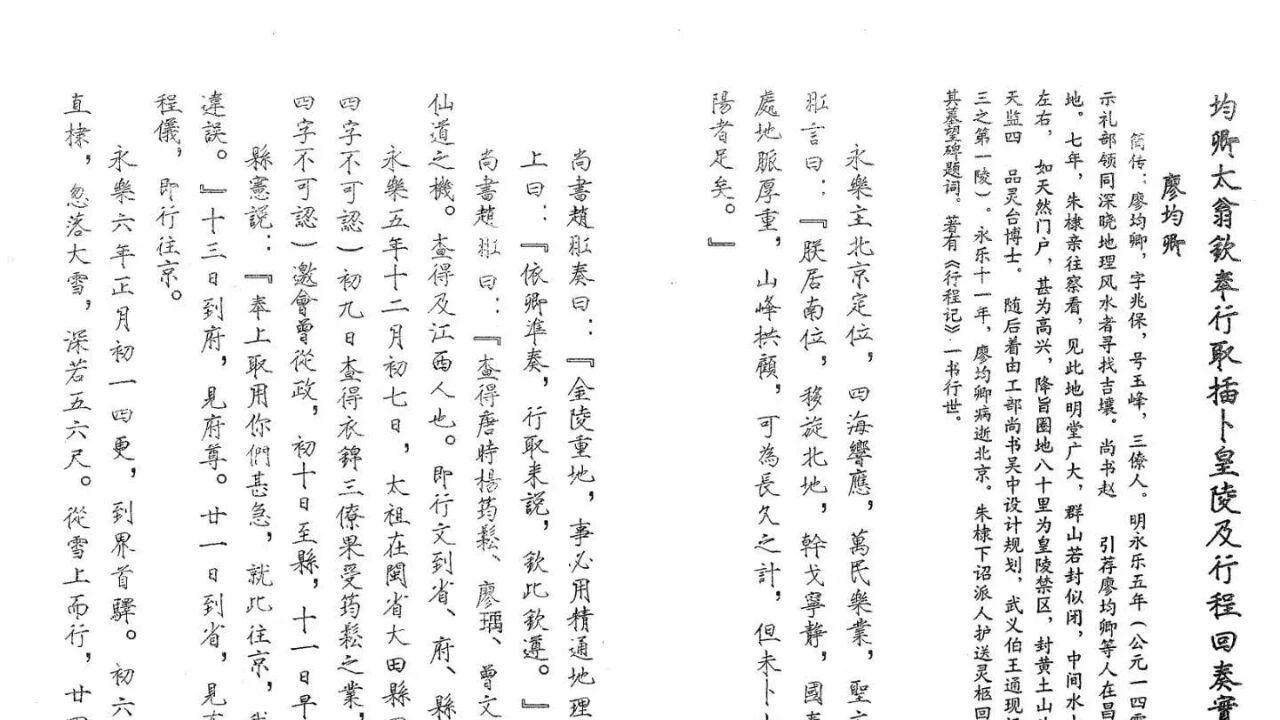 均卿太翁钦奉行取插卜皇陵及行程回奏實
廖均卿
简传：廖均卿，字兆保，号玉峰，三僚人。明永乐五年（公元一四零
示礼部领同深晓地理风水者寻找吉壤。尚书赵 引荐廖均卿等人在昌
地。七年，朱棣亲往察看，见此地明堂广大，群山若封似闭，中间水
左右，如天然门户，甚为高兴，降旨圈地八十里为皇陵禁区，封黄土山为
天监四 品灵台博士。随后着由工部尚书吴中设计规划，武义伯王通现场
三之第一陵）。永乐十一年，廖均卿病逝北京。朱棣下诏派人护送灵柩回
其墓望碑题词。著有《行程记》一书行世。
永樂主北京定位，四海響應，萬民樂業，聖
言曰：『朕居南位，移旋北地，幹戈寧静，國泰
處地脈厚重，山峰拱顧，可為長久之計，但未卜
陽者足矣。』
尚書趙 奏曰：『金陵重地，事必用精通地理
上曰：『依卿準奏，行取来説，欽此欽遵。』
尚書趙 曰：『查得唐時楊筠鬆、廖瑀、曾文
仙道之機。查得及江西人也。即行文到省、府、縣
永樂五年十二月初七日，太祖在閩省大田縣
四字不可認）初九日查得衣錦三僚果受筠鬆之業，
四字不可認）邀會曾從政，初十日至縣，十一日早
縣憲説：『奉上取用你們甚急，就此往京，
違誤。』十三日到府，見府尊。廿一日到省，見
程儀，即行往京。
永樂六年正月初一四更，到界首驛。初六
直棣，忽落大雪，深若五六尺。從雪上而行，廿四